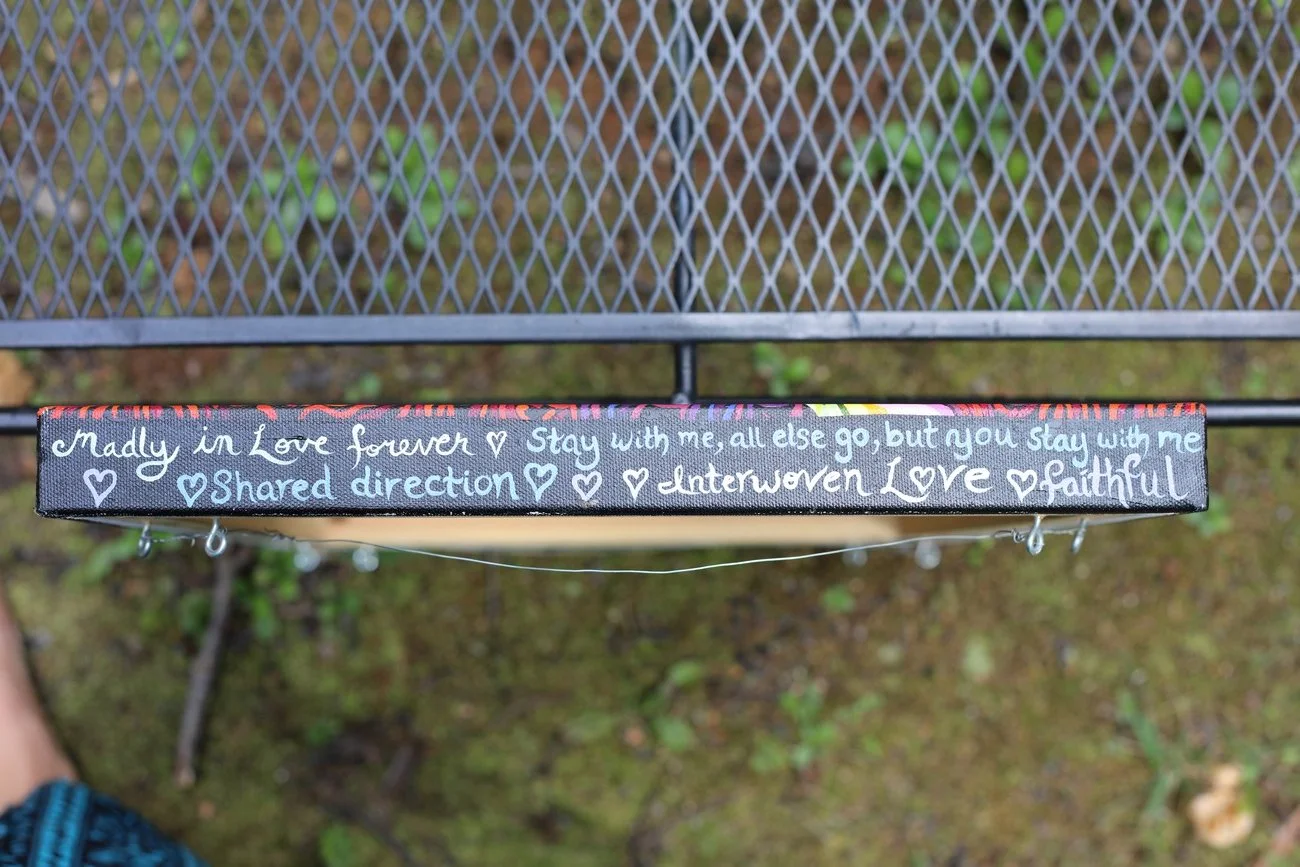 Madly in Love forever ♡ Stay with me, all else go, but you stay with me
♡ ♡ Shared direction ♡ ♡ ♡ Interwoven Love ♡ faithful